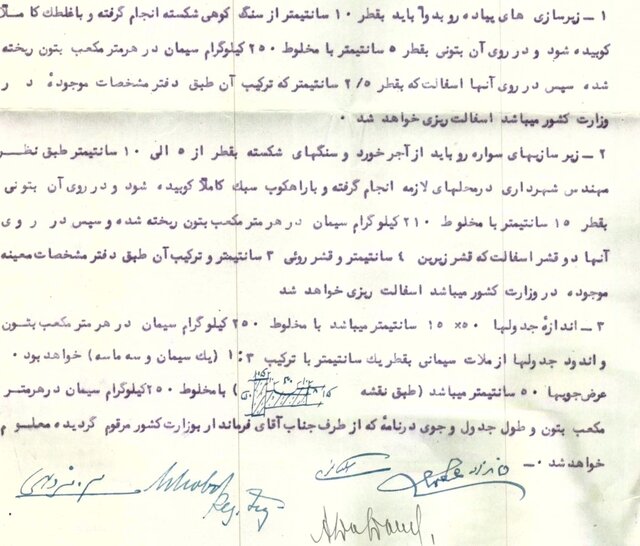 ۱ ــ زیرسازی های پیاده رو بدواً باید بقطر ۱۰ سانتیمتر از سنگ کوهی شکسته انجام گرفته و باغلطك کاملاً
کوبیده شود و در روی آن بتونی بقطر ۵ سانتیمتر با مخلوط ۲۵۰ کیلوگرام سیمان در هرمتر مکعب بتون ریخته
شده سپس در روی آنها اسفالت که بقطر ۲/۵ سانتیمتر که ترکیب آن طبق دفتر مشخصات موجودهٔ در
وزارت کشور میباشد اسفالت ریزی خواهد شد ۰
۲ ــ زیر سازیهای سواره رو باید از آجر خورد و سنگهای شکسته بقطر از ۵ الی ۱۰ سانتیمتر طبق نظر
مهندس شهرداری درمحلهای لازمه انجام گرفته و باراهکوب سبك کاملاً کوبیده شود و در روی آن بتونی
بقطر ۱۵ سانتیمتر با مخلوط ۲۱۰ کیلوگرام سیمان در هر متر مکعب بتون ریخته شده و سپس در روی
آنها دو قشر اسفالت که قشر زیرین ۴ سانتیمتر و قشر روئی ۳ سانتیمتر و ترکیب آن طبق دفتر مشخصات معینه
موجوده در وزارت کشور میباشد اسفالت ریزی خواهد شد
۳ ــ اندازهٔ جدولها ۵۰×۱۵ سانتیمتر میباشد با مخلوط ۲۵۰ کیلوگرام سیمان در هر متر مکعب بتون
و اندود جدولها از ملات سیمانی بقطر یك سانتیمتر با ترکیب ۱:۳ (یك سیمان و سه ماسه) خواهد بود ۰
عرض جویها ۵۰ سانتیمتر میباشد (طبق نقشه ) با مخلوط ۲۵۰ کیلوگرام سیمان در هرمتر
مکعب بتون و طول جدول و جوی درنامهٔ که از طرف جناب آقای فرماندار بوزارت کشور مرقوم گردیده معلوم
خواهد شد ۰ــ